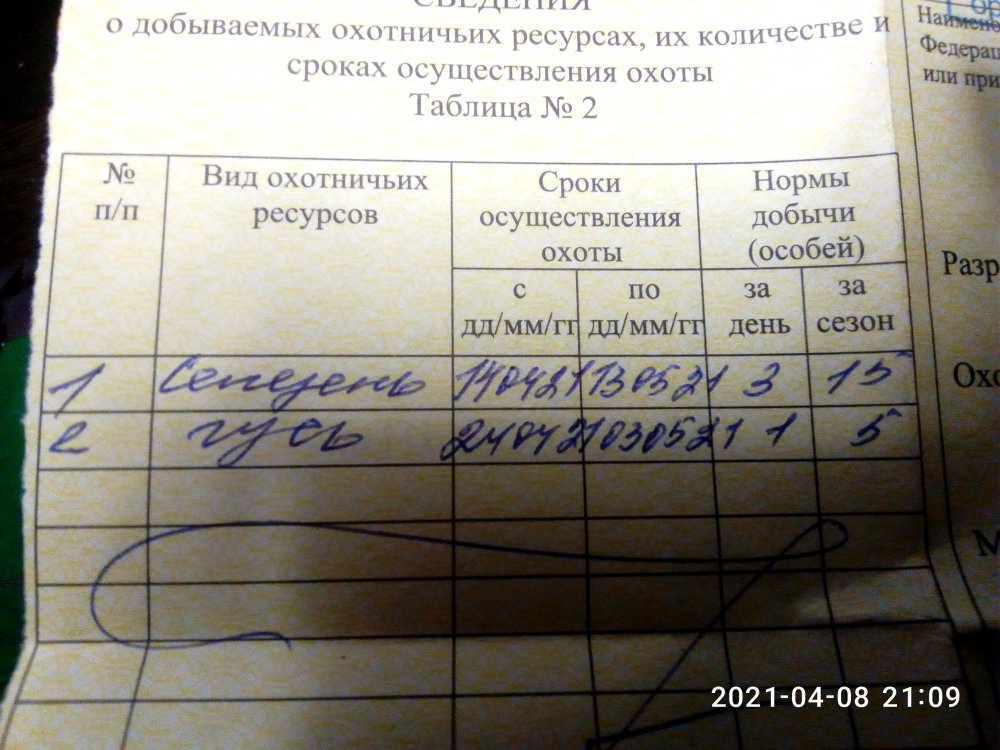 СВЕДЕНИЯ
о добываемых охотничьих ресурсах, их количестве и
сроках осуществления охоты
Таблица № 2
№ п/п
Вид охотничьих ресурсов
Сроки осуществления охоты
Нормы добычи (особей)
с дд/мм/гг
по дд/мм/гг
за день
за сезон
1 Селезень 140421 130521 3 15
2 гусь 240421 030521 1 5
Федерац
или при
Разр
Охо
М
2021-04-08 21:09